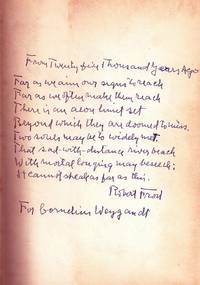 From Twenty five Thousand Years Ago
Far as we aim our signs to reach
Far as we often make them reach
There is an aeon limit set
Beyond which they are doomed to miss.
Two souls may be to widely met.
That sad-with-distance river beach
With mortal longing may beseech;
It cannot speak as far as this.
Robert Frost
For Cornelius Weygandt